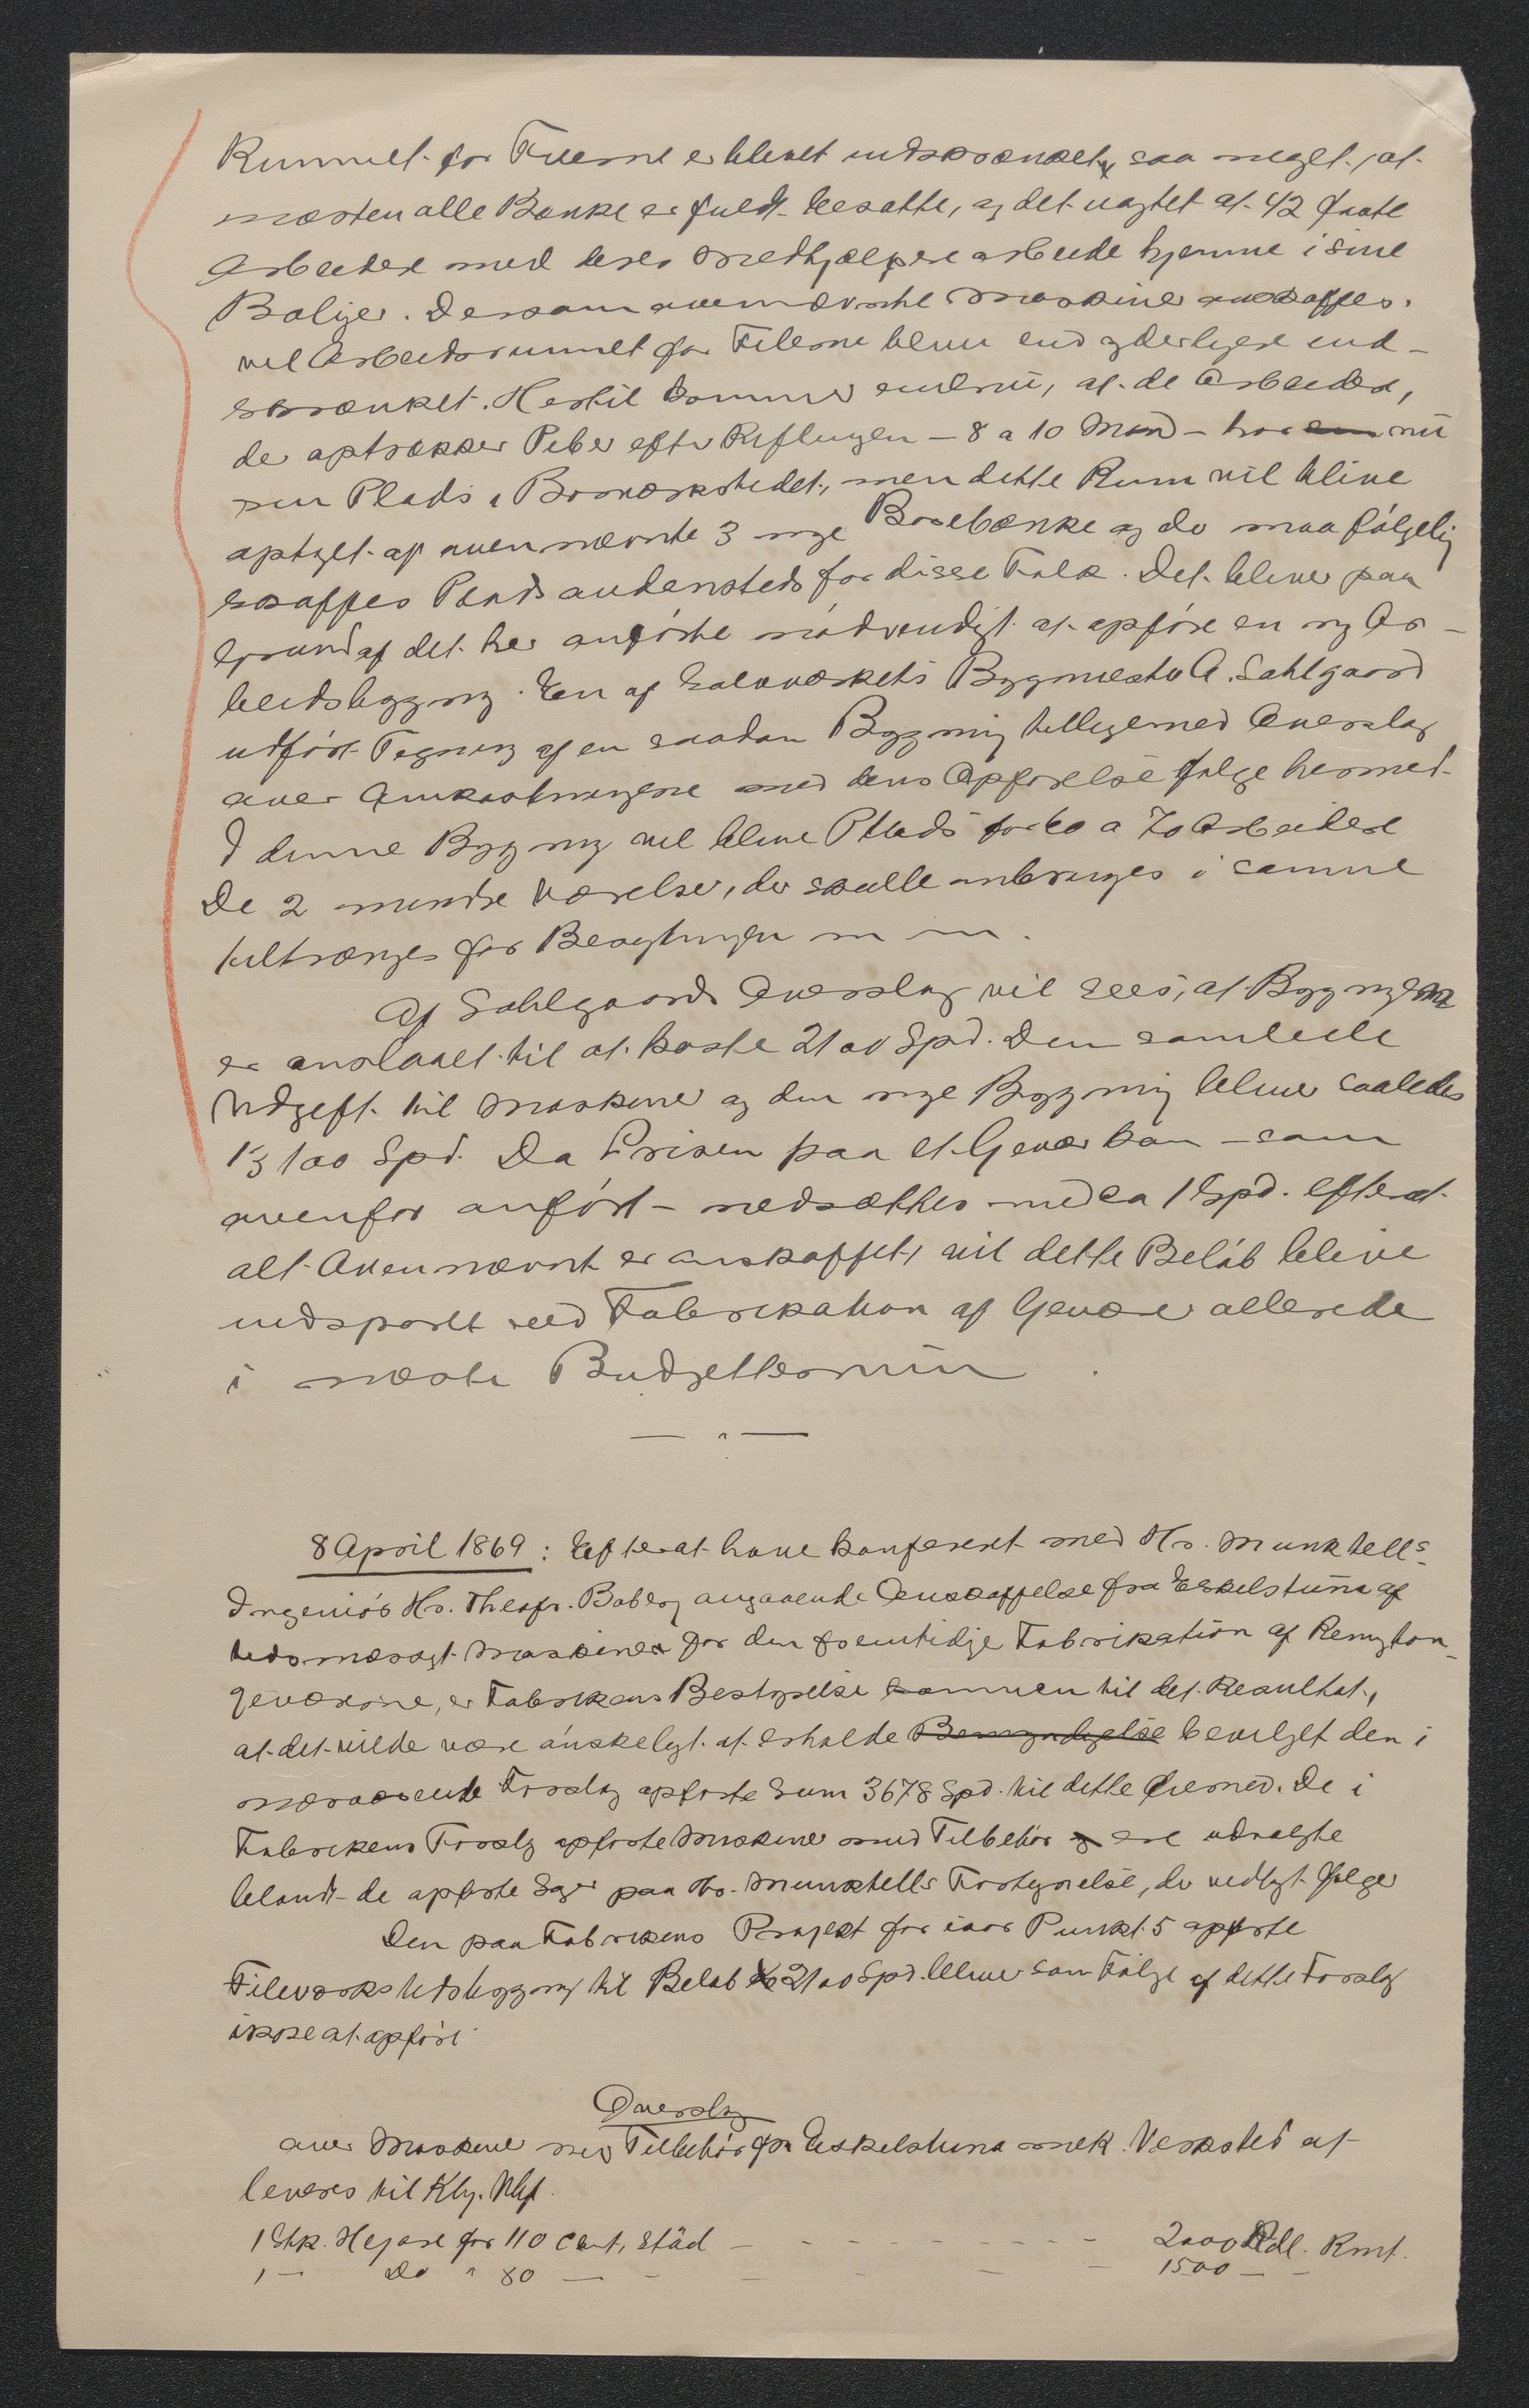 Rummet for Filerne er blevet indskrænket saa meget, at
næsten alle Bænke er fuldt besatte, og det uagtet at 42 faste
Arbeidere med deres Medhjælpere arbeide hjemme i sine
Boliger. Dersom ovennævnte Maskiner anskaffes,
vil Arbeidsrummet for Filerne blive end yderligere ind-
skrænket. Hertil kommer endnu, at de Arbeidere,
der optrækker Piber efter Riflingen - 8 a 10 Mand - har nu
sin Plads i Borværkstedet, men dette Rum vil blive
optaget af ovennævnte 3 nye Borebænke og der maa følgelig
skaffes Plads andensteds for disse Folk. Det bliver paa
Grund af det her anførte nødvendigt at opføre en ny Ar-
beidsbygning. En af Sølvværkets Bygmester A. Sahlgaard
udført Tegning af en saadan Bygning tilligemed Overslag
over Omkostningerne med dens Opførelse følge hermed.
I denne Bygning vil blive Plads for 60 a 70 Arbeidere
De 2 mindre Værelser, der skulle anbringes i samme
tiltrænges for Besigtningen m m.
Af Sahlgaards Overslag vil sees, at Bygningen
er anslaaet til at koste 2100 Spd. Den samlede
Udgift til Maskiner og den nye Bygning bliver saaledes
13100 Spd. Da Prisen paa et Gevær kan - som
ovenfor anført - nedsættes med ca 1 Spd. efterat
alt Ovennævnt er anskaffet, vil dette Beløb blive
indsparet ved Fabrikation af Geværer allerede
i næste Budgettermin.
— " —
8 April 1869 : Efterat have konfereret med Hr. Munktells
Ingeniør Hr. Theofr. Boberg angaaende Anskaffelse fra Eskelstuna af
Maskiner for den fremtidige Fabrikation af Remington-
geværerne, er Fabrikens Bestyrelse kommen til det Resultat,
at det vilde være ønskeligt at erholde Bemyndigelse bevilget den i
nærværende Forslag opførte Sum 3678 Spd. til dette Øiemed. De i
Fabrikens Forslag opførte Maskiner med Tilbehør ere udvalgte
blandt de opførte Sager paa Hr. Munktells Fortegnelse, der vedlagt følger
Den paa Fabrikens Projekt for iaar Punkt 5 opførte
Fileværkstedsbygning til Beløb 2100 Spd. bliver som Følge af dette Forslag
ikke at opføre.
Overslag
over Maskiner med Tilbehør fra Eskelstuna mek. Verksted at
leveres til Kbg. Vbf.
1 Stk. Hejare for 110 Cent, Städ - - - - - - - - - - 2000 Rdl. Rmt.
1 — Do " 80 — - - - - - 1500 — -